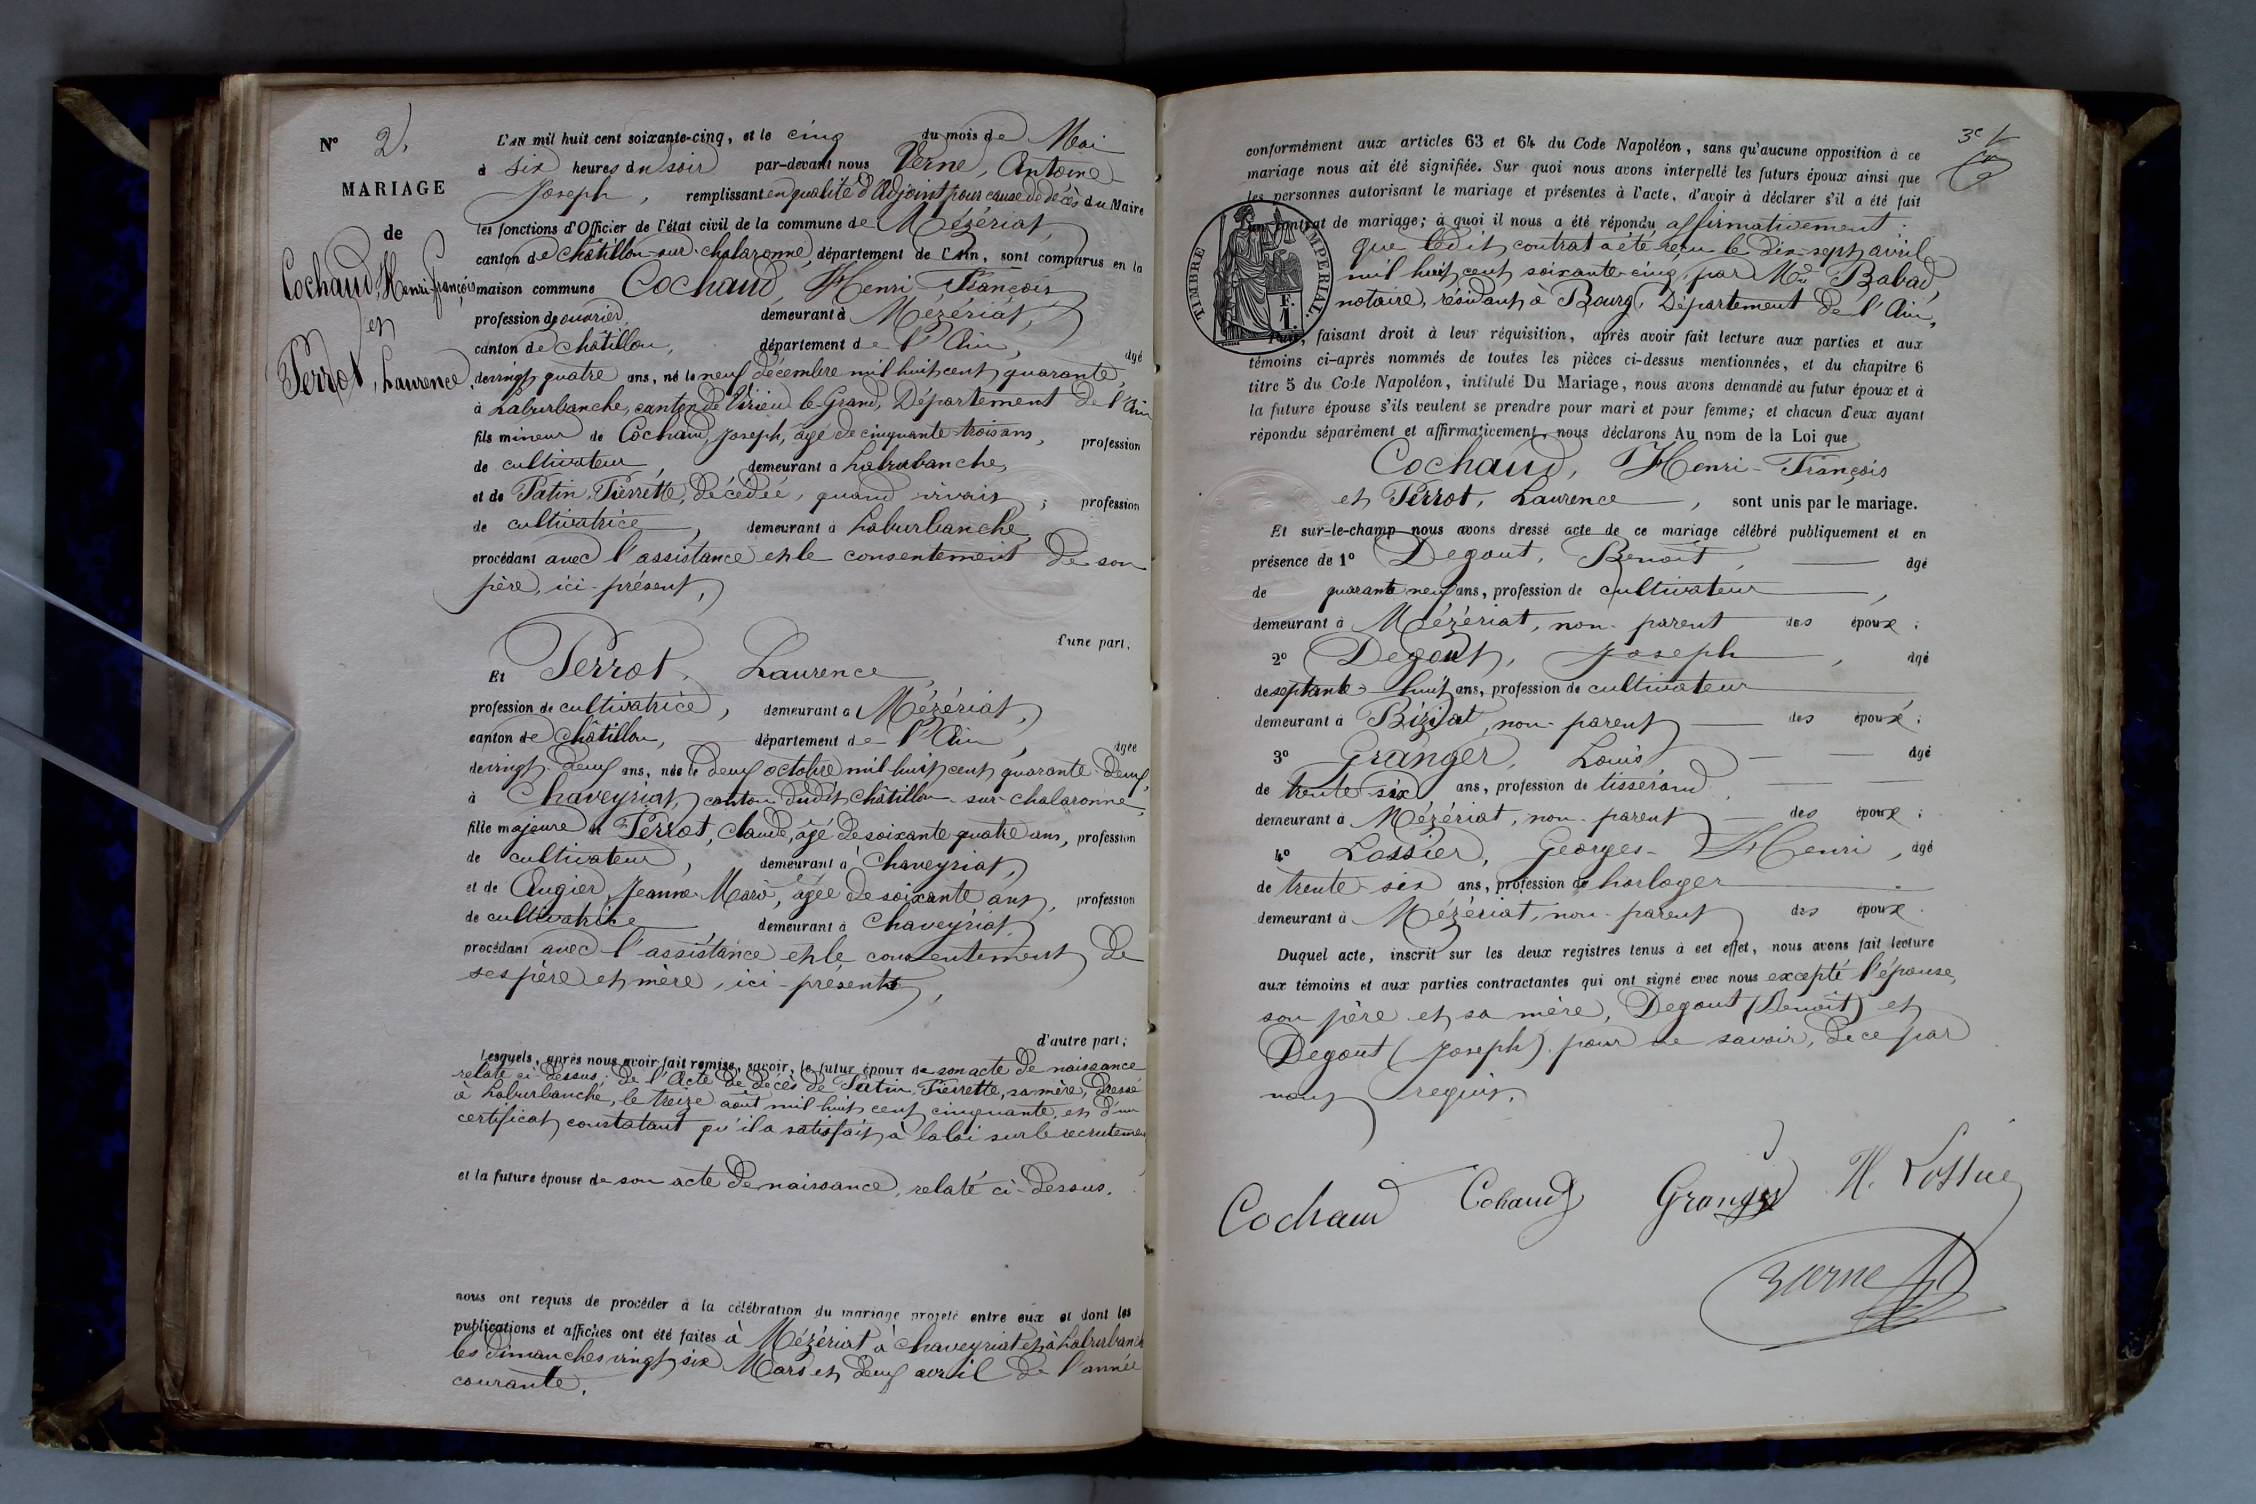 N° 2.
MARIAGE
de
Cochaud, Henri-françois
et
Perrot, Laurence
L'AN mil huit cent soixante-cinq, et le cinq du mois de Mai
à six heures du soir par-devant nous Verne, Antoine
Joseph, remplissant en qualité d'Adjoint pour cause de décès du Maire
les fonctions d'Officier de l'état civil de la commune de Mézériat,
canton de Châtillon-sur-chalaronne, département de l'Ain, sont comparus en la
maison commune Cochaud, Henri-François
profession de ouvrier, demeurant à Mézériat,
canton de Châtillon, département de l'Ain, âgé
de vingt quatre ans, né le neuf décembre mil huit cent quarante,
à Laburbanche, canton de Virieu-le-Grand, Département de l'Ain
fils mineur de Cochaud, Joseph, âgé de cinquante-trois ans, profession
de cultivateur, demeurant à Laburbanche,
et de Patin, Pierrette, décédée, quand vivait, profession
de cultivatrice, demeurant à Laburbanche,
procédant avec l'assistance et le consentement de son
père, ici-présent,
d'une part.
Et Perrot, Laurence,
profession de cultivatrice, demeurant à Mézériat,
canton de Châtillon, département de l'Ain, âgée
de vingt-deux ans, née le deux octobre mil huit cent quarante-deux,
à Chaveyriat, canton dudit Châtillon-sur-chalaronne,
fille majeure de Perrot, Claude, âgé de soixante quatre ans, profession
de cultivateur, demeurant à Chaveyriat,
et de Augier, Jeanne-Marie, âgée de soixante ans, profession
de cultivatrice demeurant à Chaveyriat,
procédant avec l'assistance et le consentement de
ses père et mère, ici-présents,
d'autre part;
Lesquels, après nous avoir fait remise, savoir, le futur époux de son acte de naissance
relaté ci-dessus; de l'Acte de décès de Patin, Pierrette, sa mère, dressé
à Laburbanche, le treize août mil huit cent cinquante, et d'un
certificat constatant qu'il a satisfait à la loi sur le recrutement
et la future épouse de son acte de naissance, relaté ci-dessus.
nous ont requis de procéder à la célébration du mariage projeté entre eux et dont les
publications et affiches ont été faites à Mézériat à Chaveyriat et à Laburbanche
les dimanches vingt-six Mars et deux avril de l'année
courante.
3e
conformément aux articles 63 et 64 du Code Napoléon, sans qu'aucune opposition à ce
mariage nous ait été signifiée. Sur quoi nous avons interpellé les futurs époux ainsi que
les personnes autorisant le mariage et présentes à l'acte, d'avoir à déclarer s'il a été fait
un contrat de mariage; à quoi il nous a été répondu affirmativement:
que ledit contrat a été reçu le dix-sept avril
mil huit cent soixante-cinq, par Me Babad,
notaire, résidant à Bourg, Département de l'Ain,
TIMBRE IMPERIAL.
F.
1.
faisant droit à leur réquisition, après avoir fait lecture aux parties et aux
témoins ci-après nommés de toutes les pièces ci-dessus mentionnées, et du chapitre 6
titre 5 du Code Napoléon, intitulé Du Mariage, nous avons demandé au futur époux et à
la future épouse s'ils veulent se prendre pour mari et pour femme; et chacun d'eux ayant
répondu séparément et affirmativement, nous déclarons Au nom de la Loi que
Cochaud, Henri-François
et Perrot, Laurence, sont unis par le mariage.
Et sur-le-champ nous avons dressé acte de ce mariage célébré publiquement et en
présence de 1° Degout, Benoit, âgé
de quarante neuf ans, profession de cultivateur,
demeurant à Mézériat, non-parent des époux;
2° Degout, Joseph, âgé
de septante-huit ans, profession de cultivateur
demeurant à Biziat, non-parent des époux;
3° Granger, Louis âgé
de trente six ans, profession de tisserand,
demeurant à Mézériat, non-parent des époux;
4° Lossier, Georges-Henri, âgé
de trente-six ans, profession de horloger
demeurant à Mézériat, non-parent des époux.
Duquel acte, inscrit sur les deux registres tenus à cet effet, nous avons fait lecture
aux témoins et aux parties contractantes qui ont signé avec nous excepté l'épouse,
son père et sa mère, Degout (Benoît) et
Degout (Joseph) pour ne savoir, de ce par
nous requis.
Cochaud Cohaud Granger H. Lossier
Verne